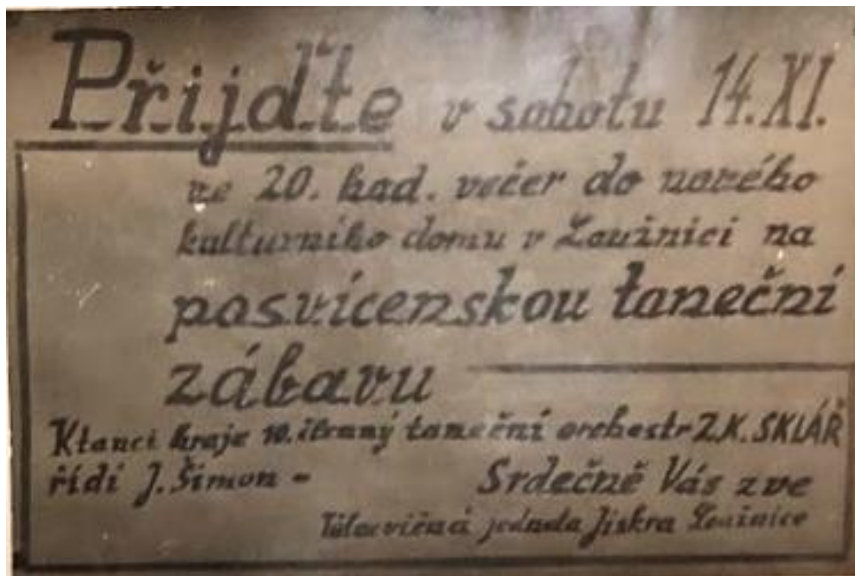 Přijďte v sobotu 14.XI.
ve 20. hod. večer do nového
kulturního domu v Loužnici na
posvícenskou taneční
zábavu
K tanci hraje 10. členný taneční orchestr Z.K. SKLÁŘ
řídí J. Šimon - Srdečně Vás zve
Tělocvičná jednota Jiskra Loužnice